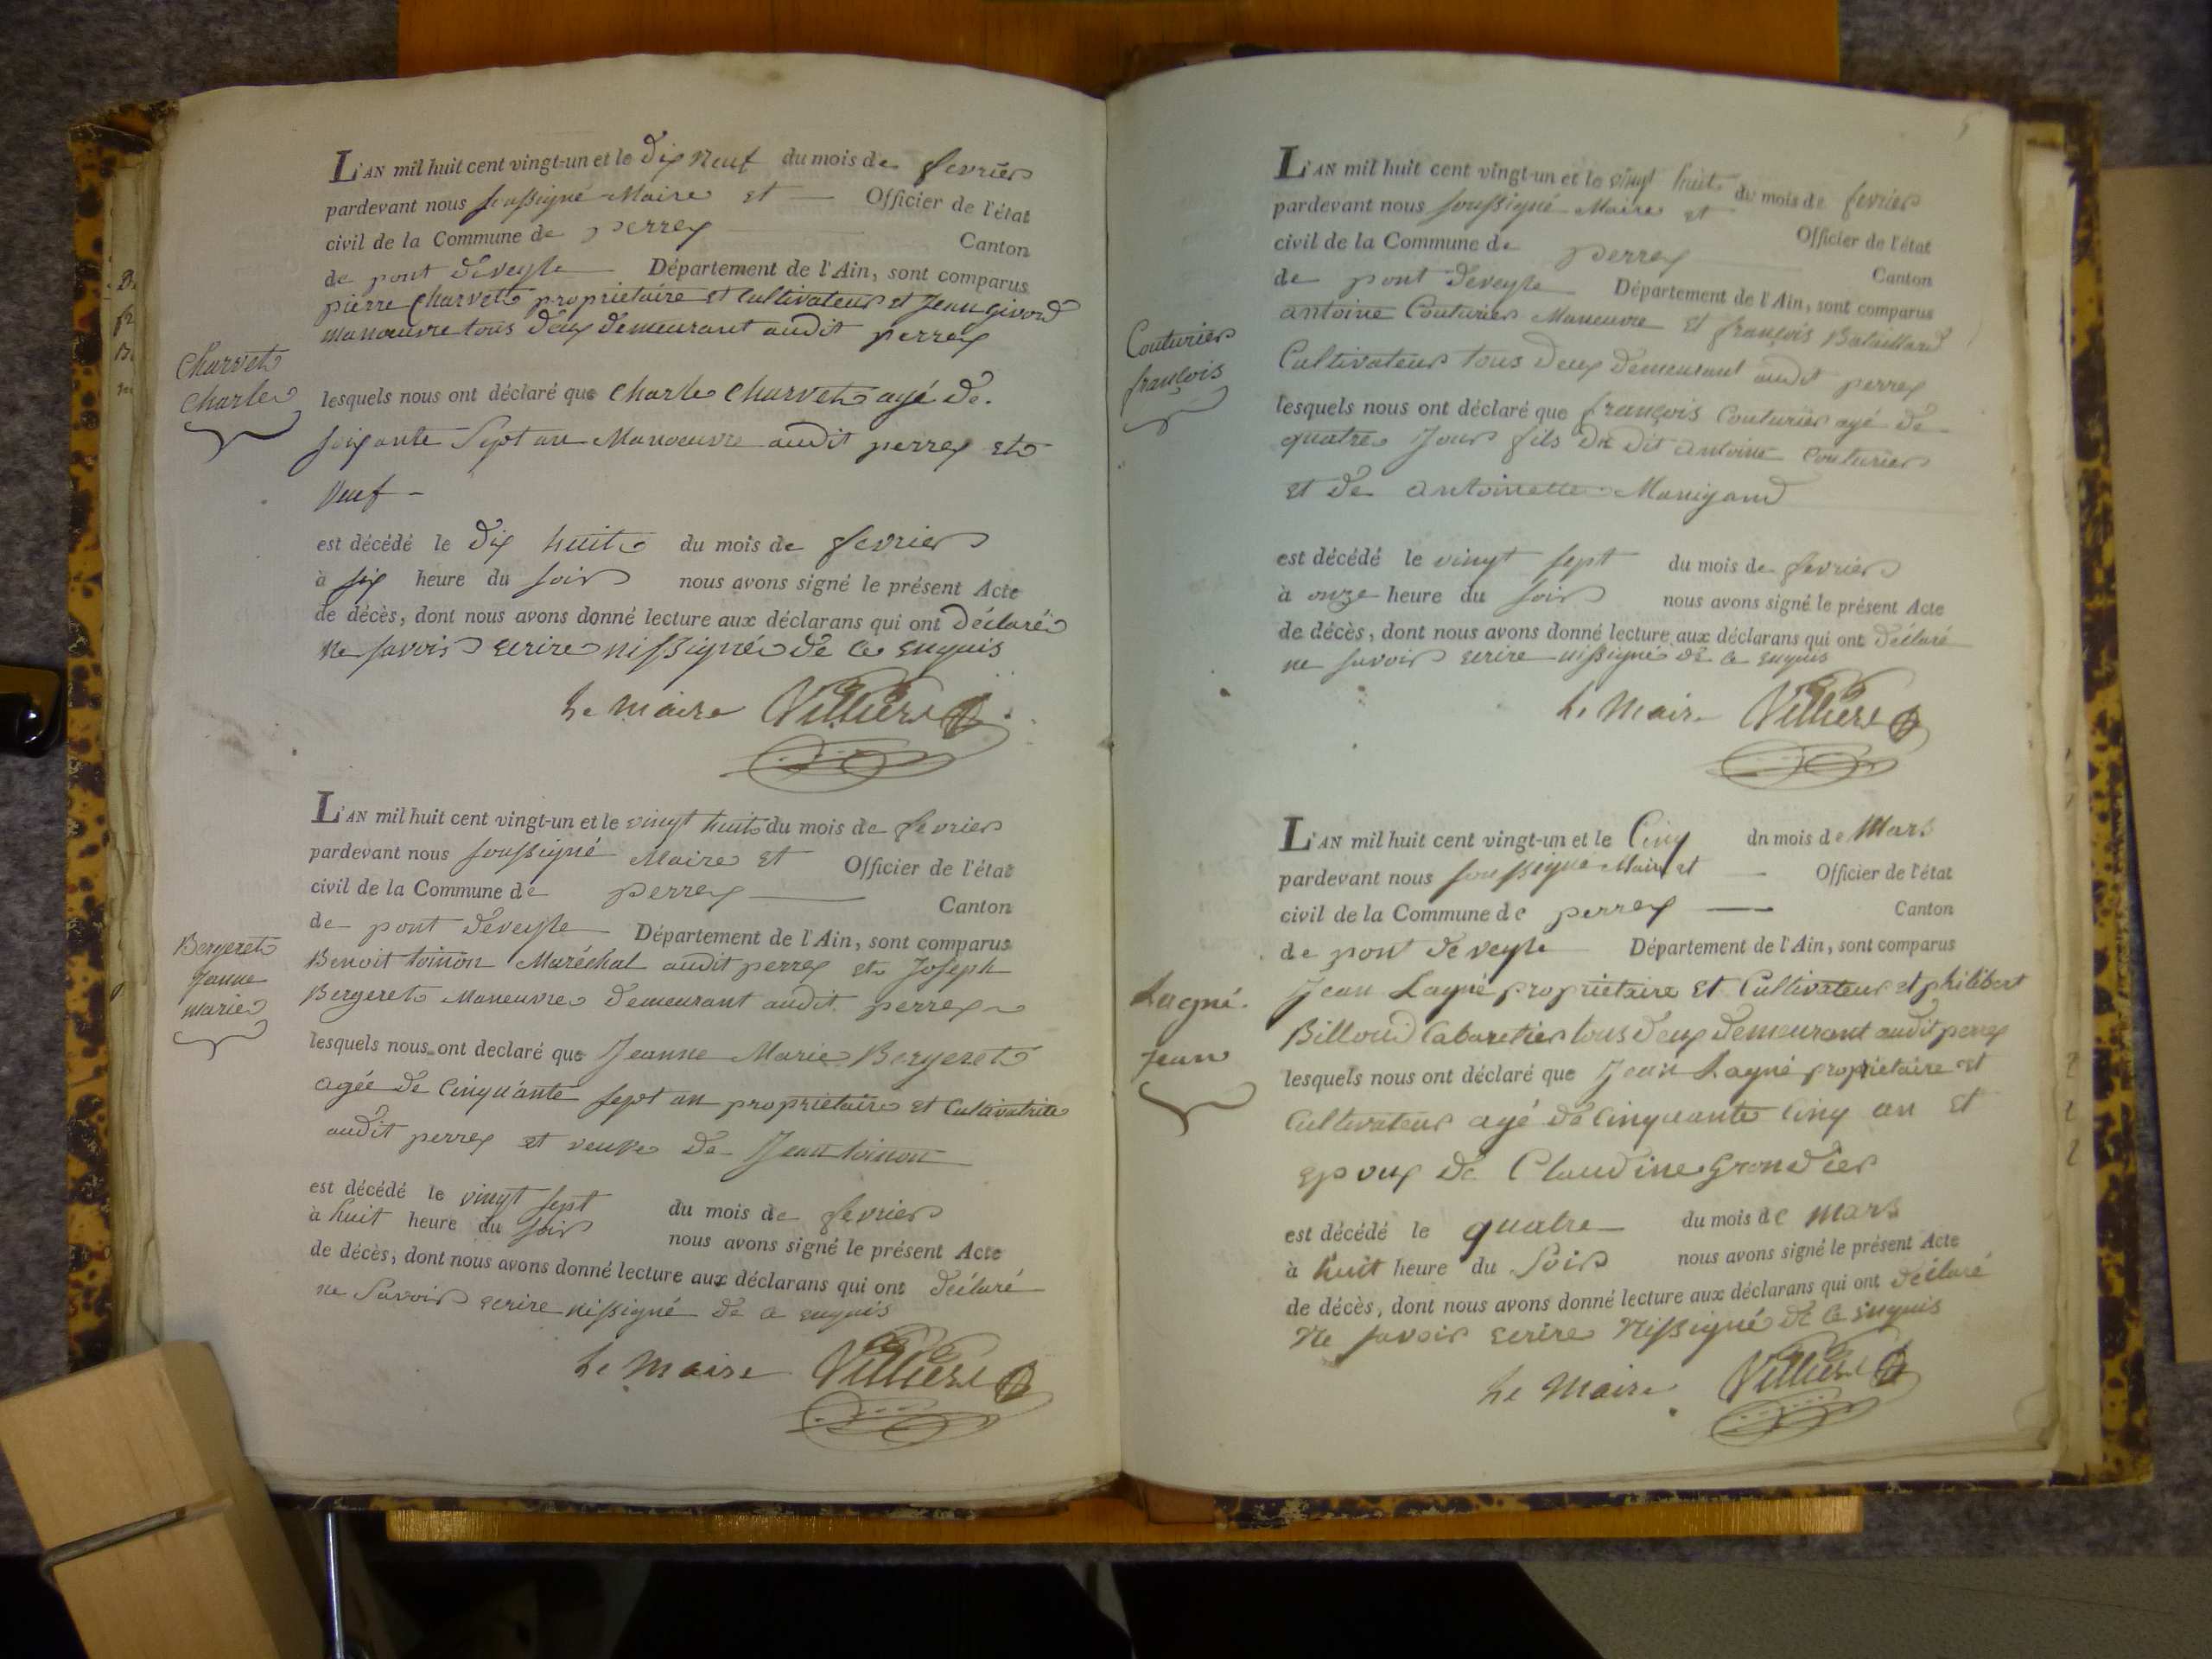 L'AN mil huit cent vingt-un et le dix neuf du mois de fevrier
pardevant nous soussigné Maire et Officier de l'état
civil de la Commune de perrex Canton
de pont deveyle Département de l'Ain, sont comparus
pierre Charvet propriétaire et Cultivateur et Jean givord
manoeuvre tous deux demeurant audit perrex
Charvet
Charle
lesquels nous ont déclaré que Charle Charvet agé de
soixante Sept an Manoeuvre audit perrex et
Veuf
est décédé le dix huit du mois de fevrier
à six heure du soir nous avons signé le présent Acte
de décès, dont nous avons donné lecture aux déclarans qui ont déclaré
ne savoir ecrire ni signé de ce enquis
Le maire Villiere
L'AN mil huit cent vingt-un et le vingt huit du mois de fevrier
pardevant nous soussigné Maire et Officier de l'état
civil de la Commune de perrex Canton
de pont deveyle Département de l'Ain, sont comparus
Bergeret
Janne
marie
Benoit toinon Maréchal audit perrex et Joseph
Bergeret Maneuvre demeurant audit perrex
lesquels nous ont declaré que Jeanne Marie Bergeret
agée de Cinquante sept an propriétaire et Cultivatrite
audit perrex et veuve de Jean toinon
est décédé le vingt sept du mois de fevrier
à huit heure du soir nous avons signé le présent Acte
de décès, dont nous avons donné lecture aux déclarans qui ont déclaré
ne Savoir ecrire ni signé de ce enquis
Le maire Villiere
5
L'AN mil huit cent vingt-un et le vingt huit du mois de fevrier
pardevant nous soussigné Maire et Officier de l'état
civil de la Commune de perrex Canton
de pont deveyle Département de l'Ain, sont comparus
Couturier
françois
antoine Couturier Maneuvre et françois Bataillard
Cultivateur tous deux demeurant audit perrex
lesquels nous ont déclaré que françois Couturier agé de
quatre Jour fils du dit antoine Couturier
et de antoinette Manigand
est décédé le vingt sept du mois de fevrier
à onze heure du soir nous avons signé le présent Acte
de décès, dont nous avons donné lecture aux déclarans qui ont déclaré
ne savoir ecrire ni signé de ce enquis
Le Maire Villiere
L'AN mil huit cent vingt-un et le Cinq dn mois de Mars
pardevant nous soussigné Maire et Officier de l'état
civil de la Commune de perrex Canton
de pont de veyle Département de l'Ain, sont comparus
Lagné
Jean
Jean Lagné propriétaire et Cultivateur et philibert
Billoud Cabaretier tous deux demeurant audit perrex
lesquels nous ont déclaré que Jean Lagné propriétaire et
Cultivateur agé de Cinquante Cinq an et
epoux de Claudine Grondier
est décédé le quatre du mois de mars
à huit heure du Soir nous avons signé le présent Acte
de décès, dont nous avons donné lecture aux déclarans qui ont déclaré
Ne savoir ecrire Ni signé de ce enquis
Le Maire Villiere